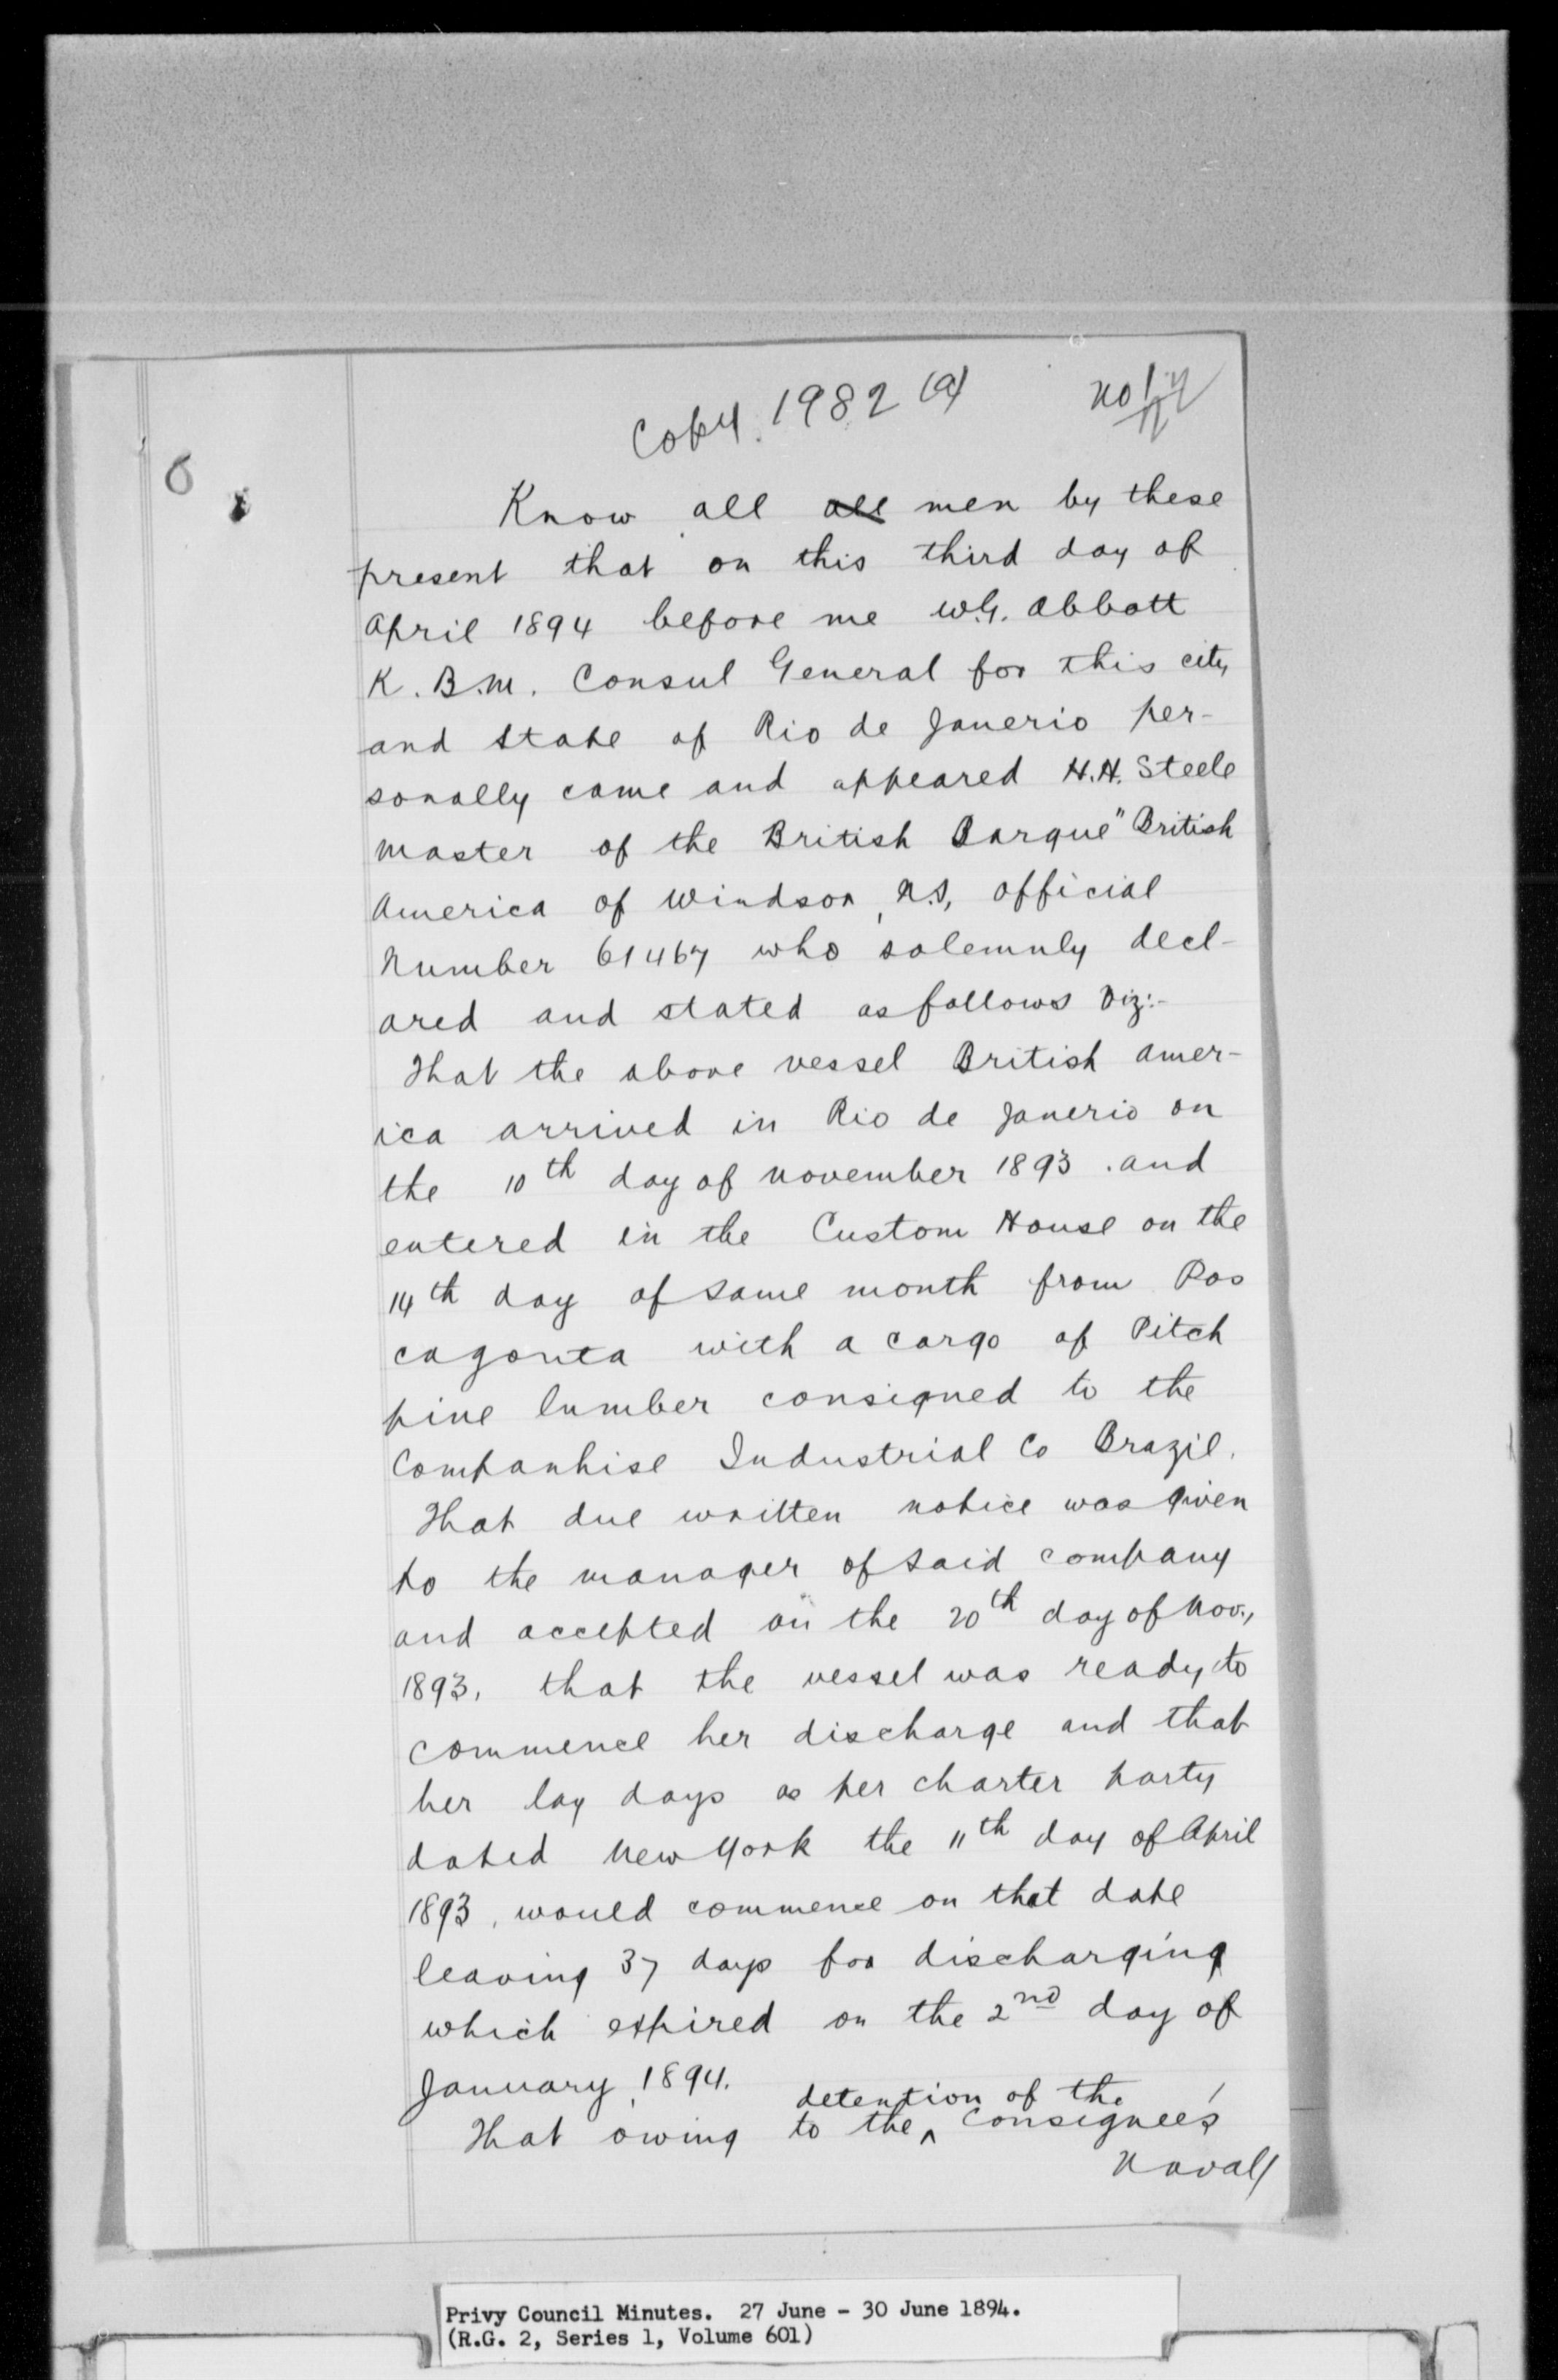 Copy. 1982 (a)
No 1
Know all all men by these
present that on this third day of
April 1894 before me W.G. Abbott
K. B.M. Consul General for this city
and State of Rio de Janerio per-
sonally came and appeared H.H. Steele
master of the British Barque "British
America of Windsor, N.S, official
Number 61467 who solemnly decl-
ared and stated as follows Viz:-
That the above vessel British Amer-
ica arrived in Rio de Janerio on
the 10th day of November 1893. and
entered in the Custom House on the
14th day of same month from Pas
cagonta with a cargo of Pitch
pine lumber consigned to the
Companhise Industrial Co Brazil.
That due written notice was given
to the manager of said company
and accepted on the 20th day of Nov.,
1893, that the vessel was ready to
commence her discharge and that
her lay days as per charter party
dated New York the 11th day of April
1893, would commence on that date
leaving 37 days for discharging
which expired on the 2nd day of
January, 1894.
detention of the
That owing to the ^ consignees'
Naval/
Privy Council Minutes. 27 June - 30 June 1894.
(R.G. 2, Series 1, Volume 601)